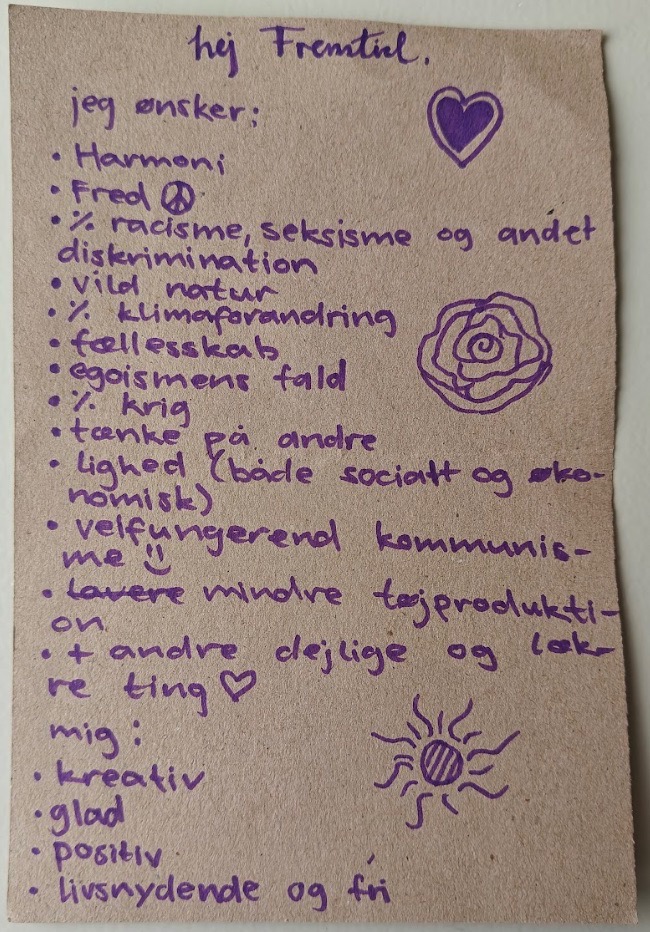 hej Fremtid.
jeg ønsker:
• Harmoni
• Fred ☮
• ٪ racisme, seksisme og andet
diskrimination
• vild natur
• ٪ klimaforandring
• fællesskab
• egoismens fald
• ٪ krig
• tænke på andre
• lighed (både socialt og øko-
nomisk)
• velfungerend kommunis-
me ☺
• ~~lavere~~ mindre tøjprodukti-
on
• + andre dejlige og læk-
re ting ♡
mig:
• kreativ
• glad
• positiv
• livsnydende og fri